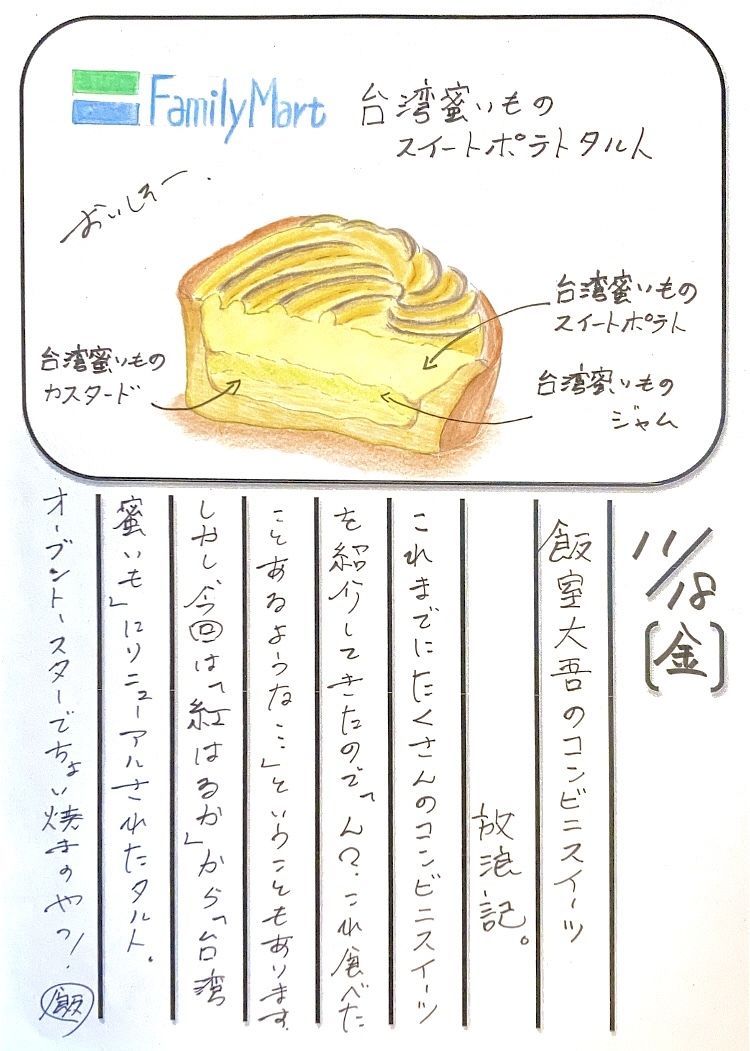 FamilyMart
台湾蜜いもの
スイートポテトタルト
おいしそー.
台湾蜜いもの
スイートポテト
台湾蜜いもの
カスタード
台湾蜜いもの
ジャム
11/18
[金]
飯室大吾のコンビニスイーツ
放浪記。
これまでにたくさんのコンビニスイーツ
を紹介してきたので「ん?これ食べた
ことあるような…」ということもあります。
しかし今回は「紅はるか」から「台湾
蜜いも」にリニューアルされたタルト。
オーブントースターでちょい焼きのやつ!
飯